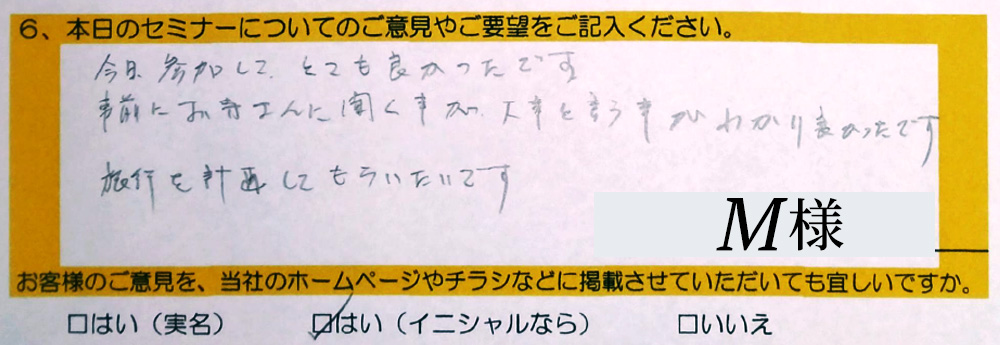 6、本日のセミナーについてのご意見やご要望をご記入ください。
今日、参加して、とても良かったです
事前にお寺さんに聞く事が、大事と言う事がわかり良かったです
旅行を計画してもらいたいです
M様
お客様のご意見を、当社のホームページやチラシなどに掲載させていただいても宜しいですか。
□はい（実名） ☑はい（イニシャルなら） □いいえ